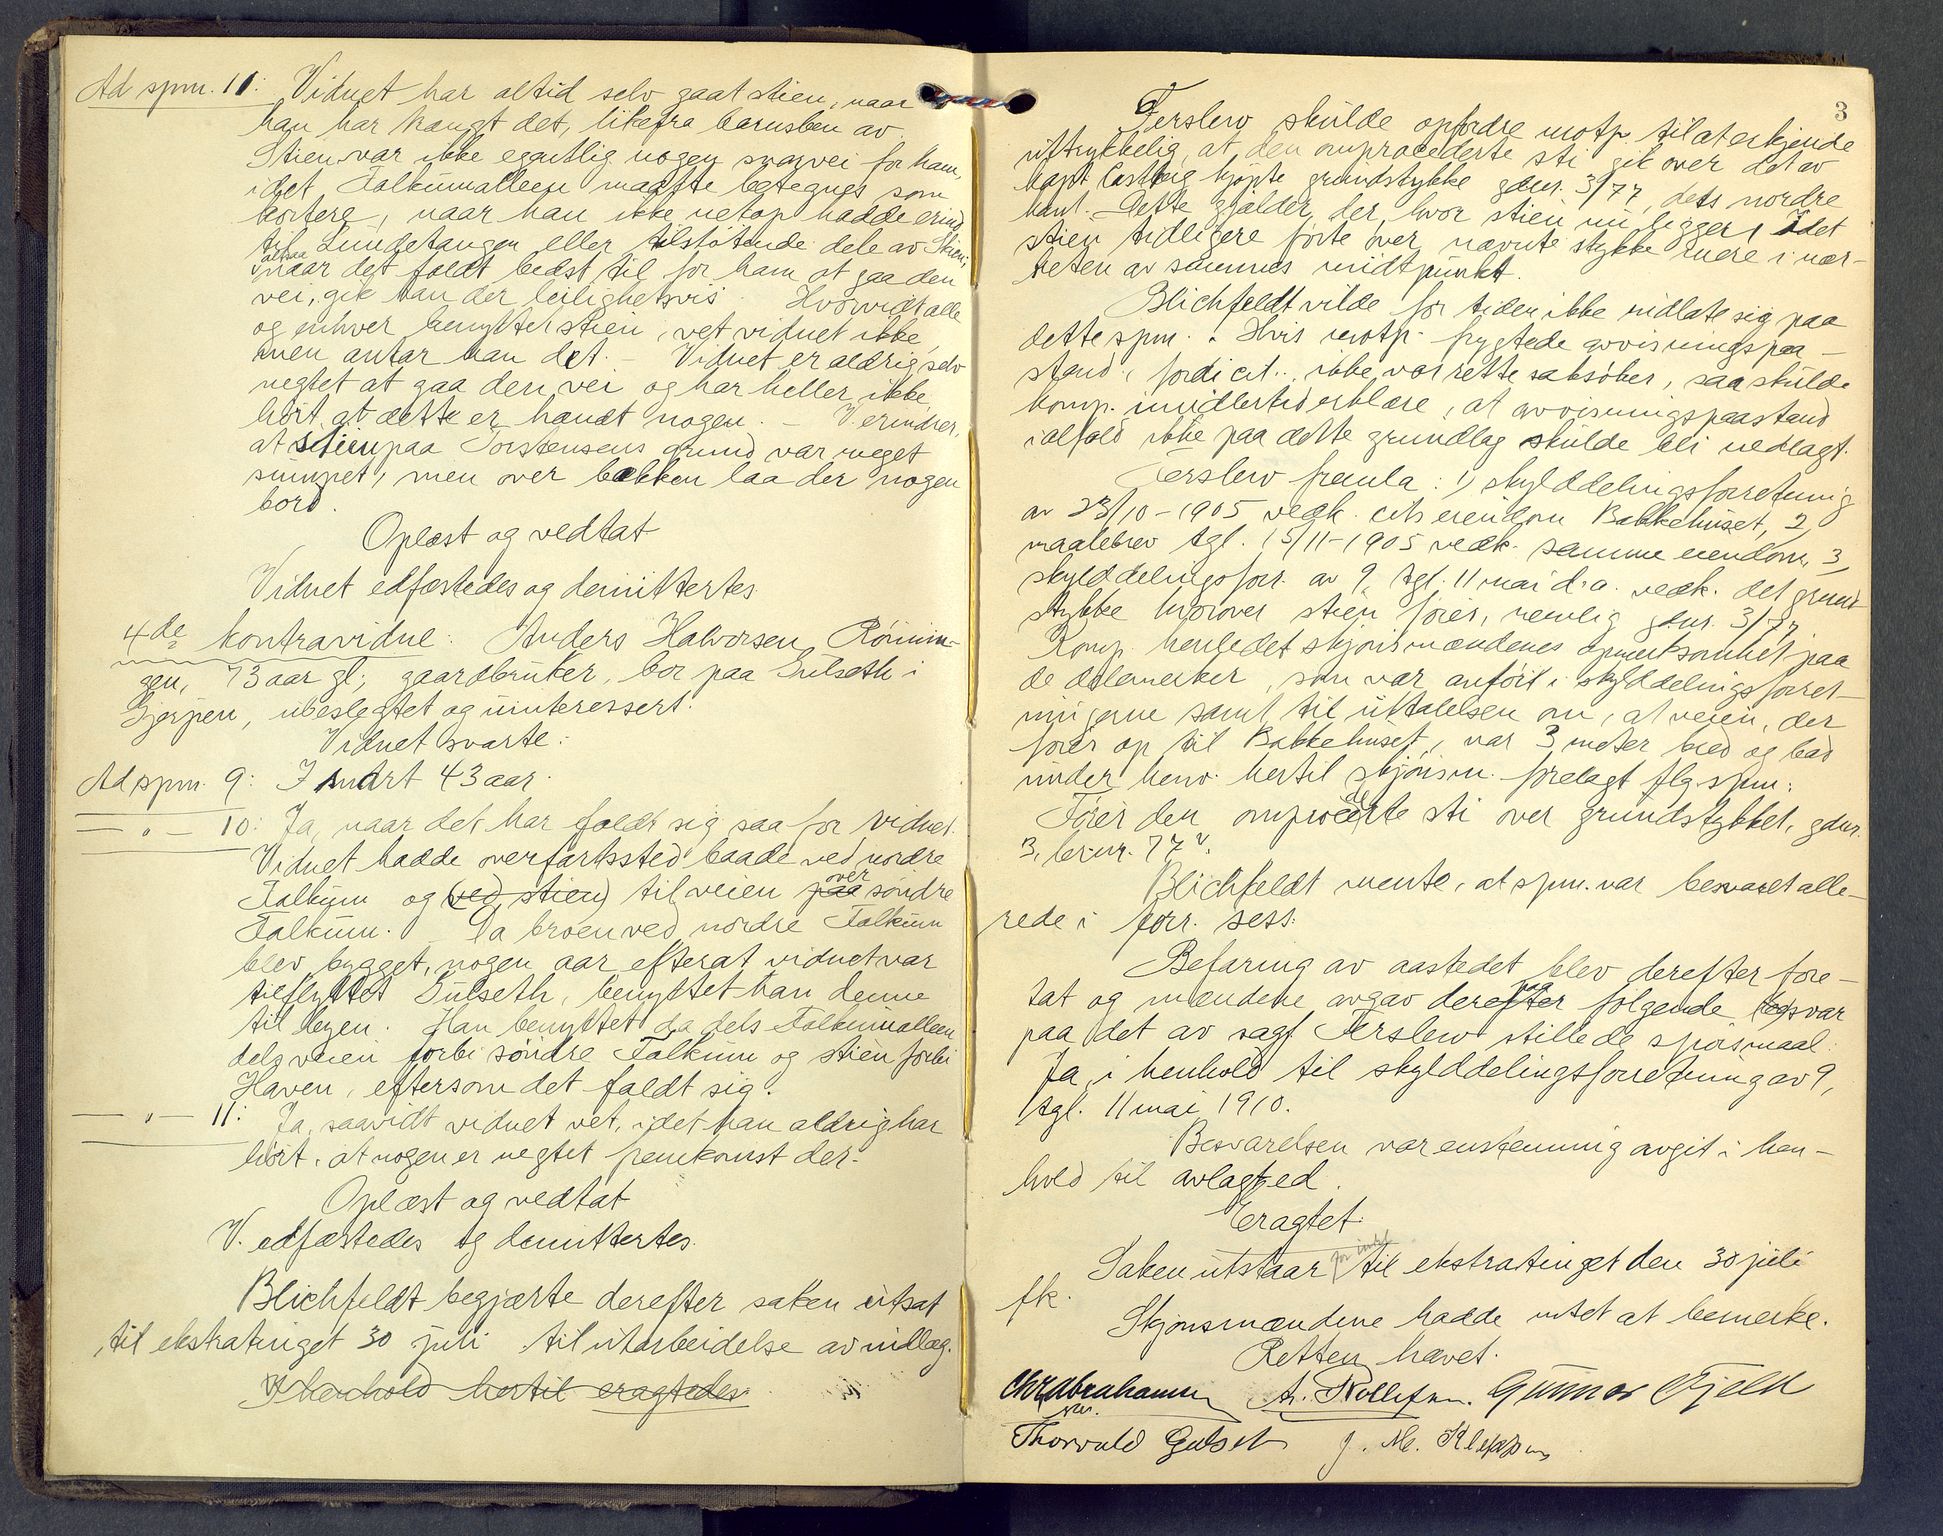 Ad spm. 11: Vidnet har altid selv gaat stien, naar
han har trængt det, likefra barnsben av.
Stien var ikke egentlig nogen snarvei for ham,
idet Falkumalleen maatte betegnes som
kortere, naar han ikke netop hadde erind
til Lundetangen eller tilstøtende dele av Skien,
naar det faldt bedst til for ham at gaa den
vei, gik han der leilighetsvis. Hvorvidt alle
og enhver benytter stien, vet vidnet ikke,
men antar han det. – Vidnet er aldrig selv
negtet at gaa den vei og har heller ikke
hørt at dette er hændt nogen. – V. erindrer,
at stien paa Torstensens grund var meget
sumpet, men over bækken laa der nogen
bord.
Oplæst og vedtat
Vidnet edfæstedes og demittertes.
4de kontravidne: Anders Halvorsen Rønnin-
gen, 73 aar gl., gaardbruker, bor paa Gulseth i
Gjerpen, ubeslegtet og uinteressert.
Vidnet svarte:
Ad spm. 9: I snart 43 aar.
— " — 10: Ja, naar det har faldt sig saa for vidnet.
Vidnet hadde overfartssted baade ved nordre
Falkum og (ved stien) til veien paa over søndre
Falkum. Da broen ved nordre Falkum
blev bygget, nogen aar efterat vidnet var
tilflyttet Gulseth, benyttet han denne
til byen. Han benyttet da dels Falkumalleen
dels veien forbi søndre Falkum og stien forbi
Haven, eftersom det faldt sig.
— " — 11: Ja, saavidt vidnet vet, idet han aldrig har
hørt, at nogen er negtet fremkomst der.
Oplæst og vedtat
V. edfæstedes og demittertes.
Blichfeldt begjærte derefter saken utsat
til ekstratinget 30 juli til utarbeidelse av indlæg.
I henhold hertil eragtedes:
3
Terslew skulde opfordre motp. til at erkjende
uttrykkelig, at den omprocederte sti gik over det av
kapt. Castberg kjøpte grundstykke gdnr. 3/77, dets nordre
kant. – Dette gjælder der, hvor stien nu ligger, idet
stien tidligere førte over nævnte stykke mere i nær-
heten av sammes midtpunkt.
Blichfeldt vilde for tiden ikke indlate sig paa
dette spm. Hvis motp. frygtede avvisningspaa-
stand, fordi cit. ikke var rette saksøker, saa skulde
komp. imidlertid erklære, at avvisningspaastand
ialfald ikke paa dette grundlag skulde bli nedlagt.
Terslew fremla: 1) skylddelingsforretning
av 23/10-1905 vedk. cits eiendom Bakkehuset, 2,
maalebrev tgl. 15/11-1905 vedk. samme eiendom, 3,
skylddelingsforr. av 9, tgl. 11 mai d.a. vedk. det grund-
stykke hvorover stien fører, nemlig gdnr. 3/77
Komp. henledet skjønsmændenes opmerksomhet paa
de delemerker, som var anført i skylddelingsforret-
ningerne samt til uttalelsen om, at veien, der
fører op til Bakkehuset, var 3 meter bred og bad
under henv. hertil skjønsm. forelagt flg. spm.:
Fører den omprocederte sti over grundstykket, gdnr.
3, br.nr. 77?
Blichfeldt mente, at spm. var besvaret alle-
rede i forr. sess.
Befaring av aastedet blev derefter fore-
tat og mændene avgav derefter følgende svar
paa det av sagf. Terslew stillede spørsmaal:
Ja, i henhold til skylddelingsforretning av 9,
tgl. 11 mai 1910.
Besvarelsen var enstemmig avgit i hen-
hold til avlagt ed.
Eragtet:
Saken utstaar til ekstratinget den 30 juli
fk.
Skjønsmændene hadde intet at bemerke.
Retten hævet.
Chr Abrahamsen A. Rollefsen. Gunnar Fjeld
Thorvald Gulset J. M. Kleppen